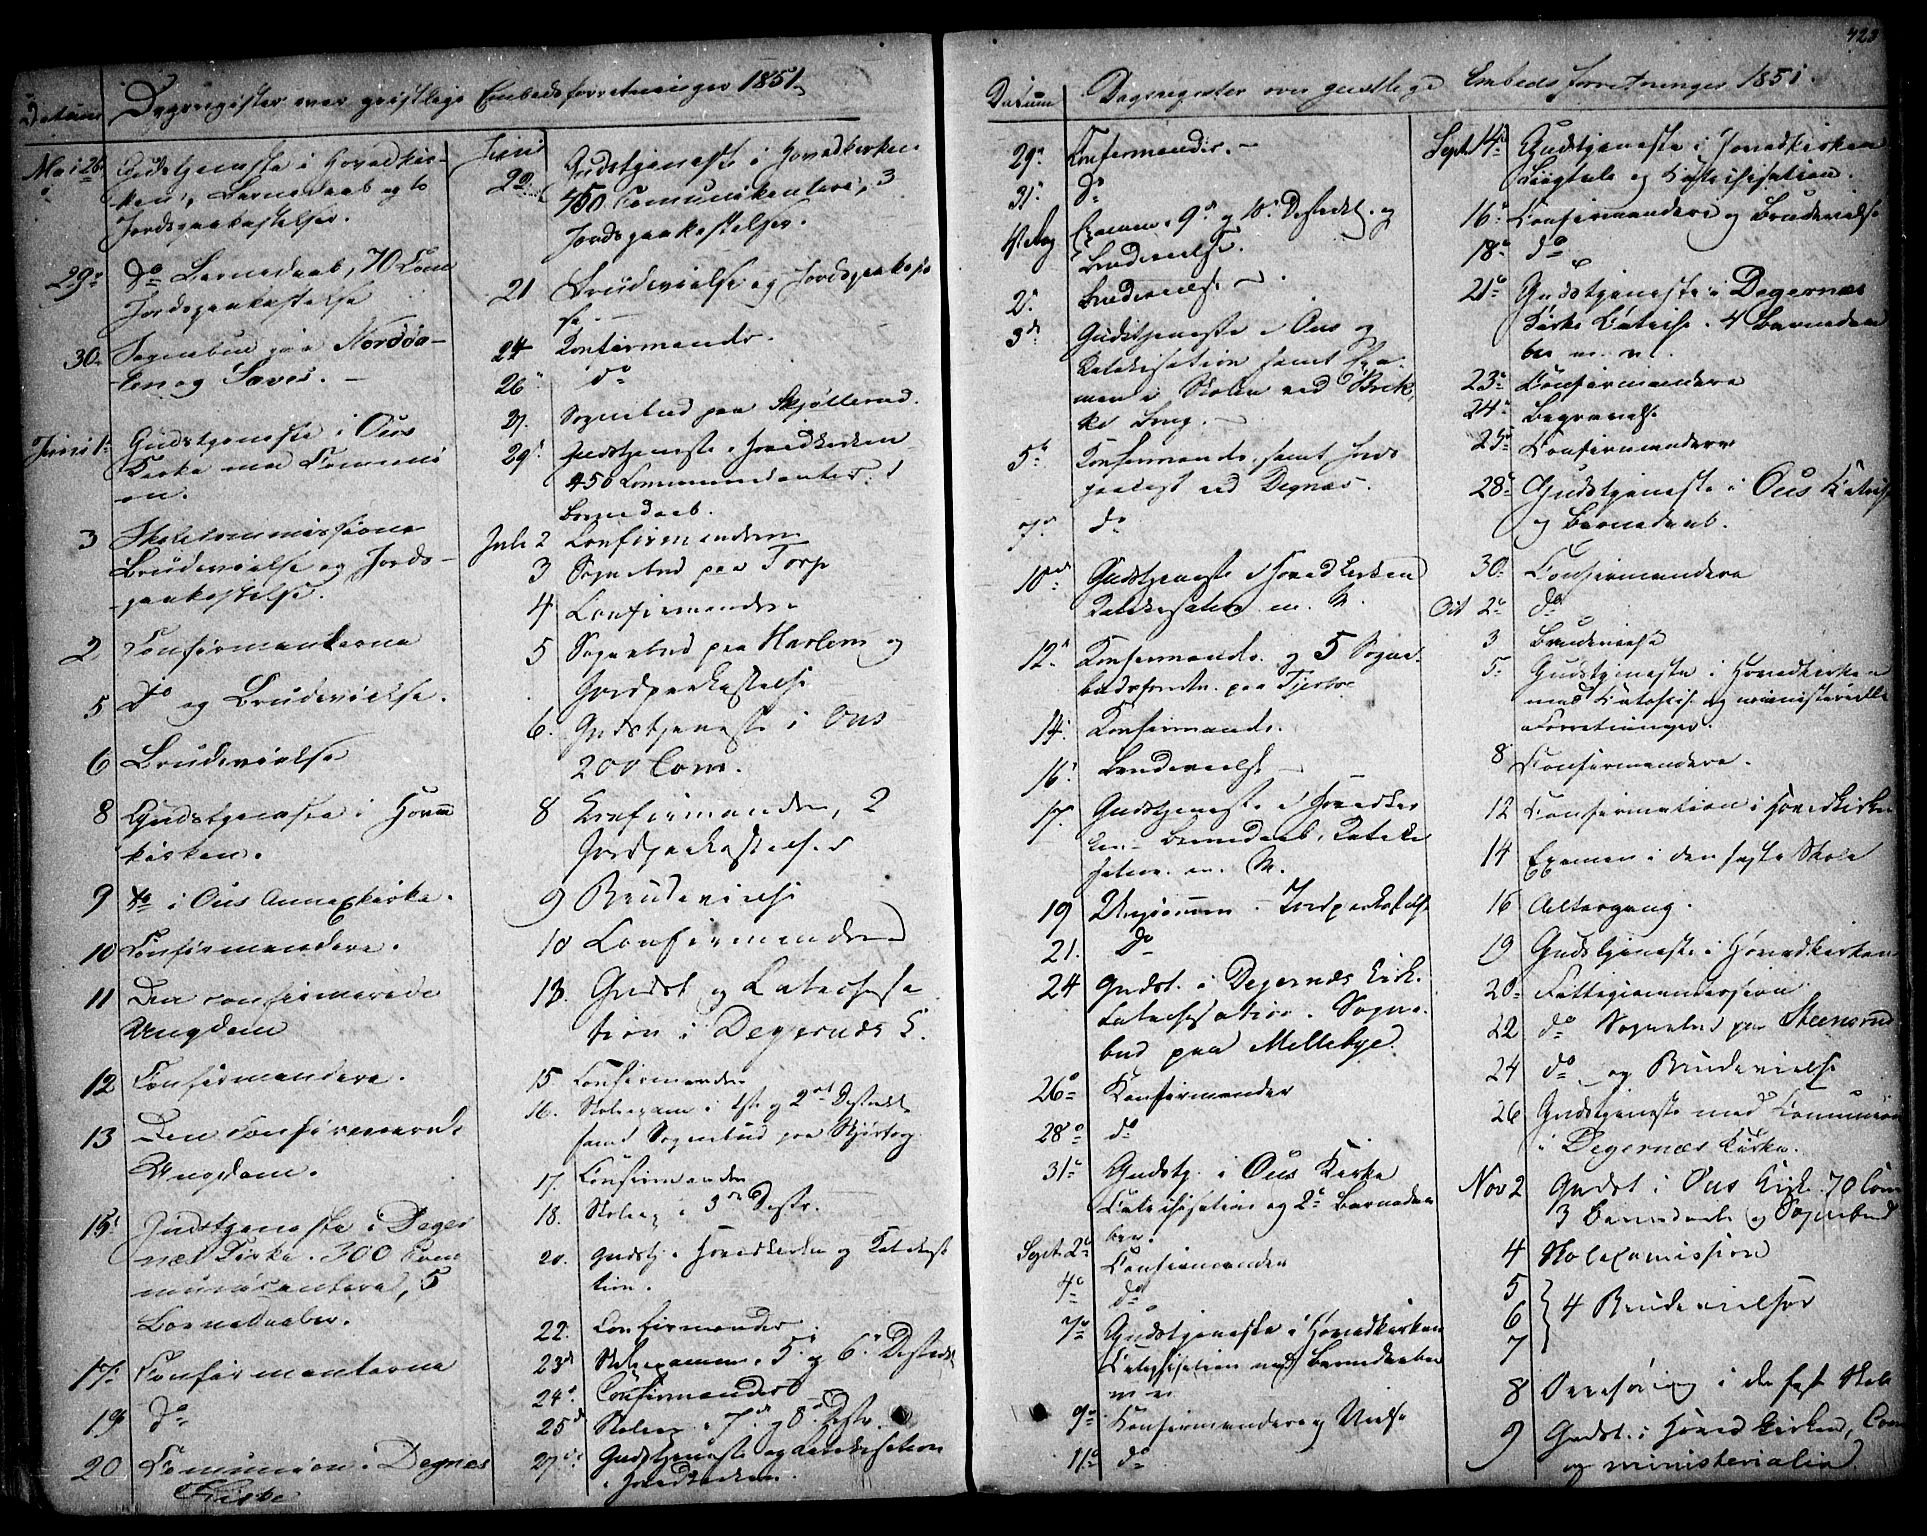 Datum
Dagsregister over geistlige Embedsforretninger 1851.
Mai 25
Gudstjeneste i Hovedkir-
ken, Barnedaab og to
Jordspaakastelser.
29 Do Barnedaab, 70 Com
Jordspaakastelse
30 Sognebud paa Norddа-
len og Saves. –
Juni 1 Gudstjeneste i Ous
Kirke med Communi
on.
3 Skolecommissionen
Brudevielse og Jords-
paakastelse.
2 Confirmanterne
5 Do og Brudevielse.
6 Brudevielse
8 Gudstjeneste i Hoved
kirken.
9 Do i Ous Annexkirke.
10 Confirmandere.
11 Den confirmerede
Ungdom
12 Confirmandere.
13 Den confirmerede
Ungdom.
15 Gudstjeneste i Deger
næs Kirke. 300 Com
municantere, 5
Barnedaaber.
17 Confirmanterne
19 Do
20 Comunion i Degnæs
Kirke
Juni
22 Gudstjeneste i Hovedkirken
450 Comunikentere, 3
Jordspaakastelser.
21 Brudevielse og Jordspaakastel
se. –
24 Konfirmands.
26 do
27. Sognebud paa Skjøllerud.
29 Gudstjeneste i Hovedkirken
450 Communicanter. 1
Barnedaab.
Juli 2 Confirmandere
3 Sognebud paa Torp
4 Confirmandere
5 Sognebud paa Harlem og
Jordpaakastelse
6. Gudstjeneste i Ous
200 Com.
8 Confirmandere, 2
Jordpaakastelser
9 Brudevielse
10 Confirmandere
13. Gudst og Catechisa
tion i Degernæs K.
15 Confirmandere
16. Skoleexam i 1ste og 2det Distrikt
samt Sognebud paa
17. Confirmandere
18. Skoleex i 3die Distr.
20. Gudstj. i Hovedkirken og Katekisa
tion.
22. Confirmander.
23de Skoleexamen i 5 og 6 Distrikt
24 Confirmander
25de Skoleex i 7de og 8de Distr.
27de Gudstjeneste og Katekisation
i Hovedkirken.
423
Datum
Dagsregister over geistlige Embedsforretninger 1851.
29 Konfirmandis. –
31 do
1 Aug Examen i 9de og 10de Distrikt og
Brudevielse.
2 Brudevielse –
3de Gudstjeneste i Ous og
Katekisation samt Exa-
men i Skolen ved Brek
ke Brug. –
5te Konfirmands. samt Jords
paakast ved Degnæs.
7de do
10de Gudstjeneste i Hovedkirken
Katekisation m. M.
12 Konfirmands. og 5 Sogne-
budsforretn. paa
14. Konfirmands.
16. Brudevielse –
17. Gudstjeneste i Hovedkir
ken – Barnedaab, Kateki
sation. m. M.
19 Ungdommen – Jordpaakastelse
21. Do
24 Gudst. i Degernæs Kirk.
Catechisation. Sogne-
bud paa Mellebye.
26 Konfirmander
28 do
31 Gudstj. i Ous Kirke
Catechisation og 2 Barnedaa
ber.
Sept. 2 Confirmander
4 do
7 Gudstjeneste i Hovedkirken
Catechisation med Barnedaaber
m m
9 Konfirmandere og Vielse
11 do
Sept 14 Gudstjeneste i Hovedkirken
Liigtale og Catechisation.
16 Confirmandere og Brudevielse
18 do
21 Gudstjeneste i Degernæs
Kirke Catech. 4 Barnedaa
ber m. m.
23 Confirmandere
24 Begravelse
25 Confirmandere
28 Gudstjeneste i Ous Katech
og Barnedaab.
30 Confirmandere
Oct 2 do
3 Brudevielse
5 Gudstjeneste i Hovedkirken
med Catechis. og ministerielle
Forretninger.
8 Confirmandere.
12 Confirmation i Hovedkirken
14 Examen i den faste Skole
16 Altergang.
19 Gudstjeneste i Hovedkirken
20 Fattigcommission
22 do Sognebud paa Steensrud
24 do og Brudevielse
26 Gudstjeneste med Communion
i Degernæs Kirke.
Nov 2 Gudst i Ous Kirk. 70 Com
3 Barnedaab og Sognebud
4 Skolecomission
5
6 } 4 Brudevielser
7
8 i den faste Skole
9 Gudst. i Hovedkirken, Com
og ministerialia.